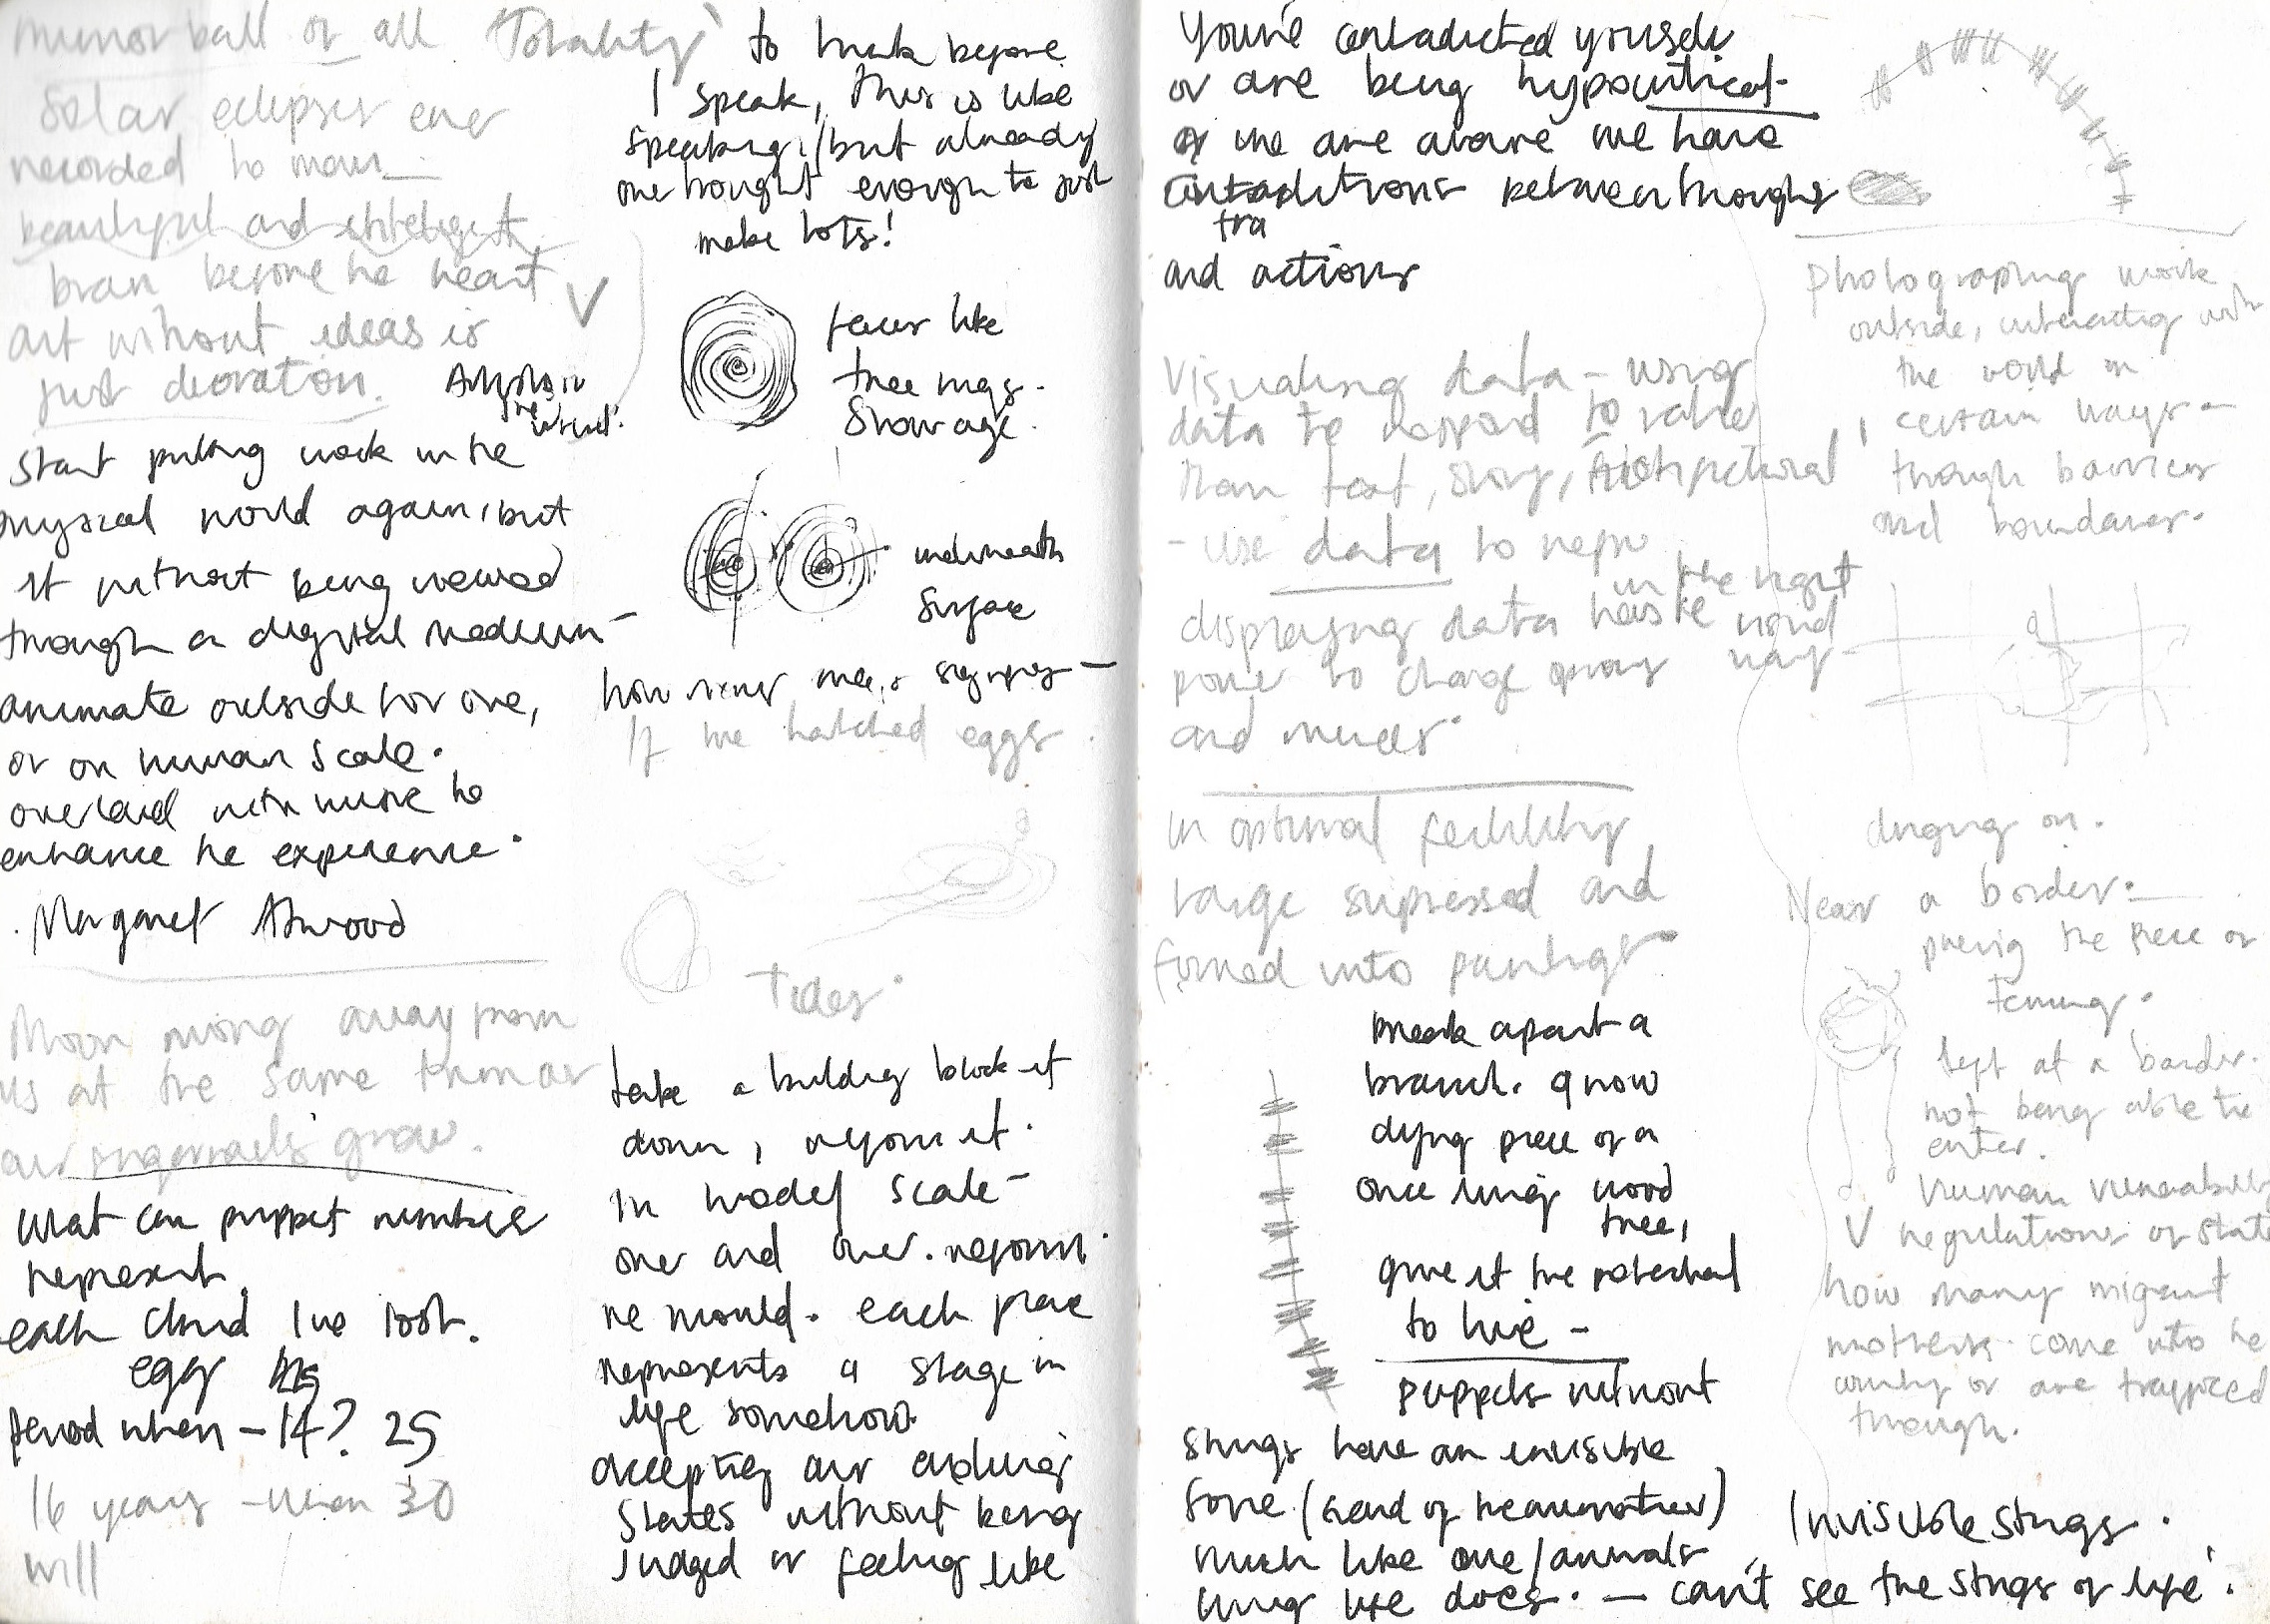 mirror ball of all 'Totality'
Solar eclipses ever
recorded to man
beautiful and intelligent
brain before the heart
art without ideas is
just decoration.
start putting work in the
physical world again, but
it without being viewed
through a digital medium -
animate outside for one,
or on human scale.
overlaid with music to
enhance the experience.
. Margaret Atwood
Moon moving away from
us at the same time as
our fingernails grow.
What can puppet number
represent
each child I've lost.
egg
period when - 14? 25
16 years - when 30
will
to think before
I speak, this is like
speaking, but already
one thought enough to just
make lots!
faces like
tree rings.
Show age.
underneath
Surface
how many
If we hatched eggs.
tides.
take a building block it
down, reform it.
in model scale -
over and over. reform
the mould. each place
represents a stage in
life somehow.
accepting our
states without being
judged or feeling like
You've contradicted yourself
or are being hypocritical -
we are aware we have
contraditions between thoughts
tra
and actions
Visualising data - using
data to respond to rather
than text, story, Architectural
- use data to
in the right
displaying data has the
power to change
way -
and minds.
in optimal fertility
range supressed and
formed into paintings
Break apart a
branch. a now
dying piece of a
once living wood
tree,
give it the potential
to live -
puppets without
strings have an invisible
force (hand of the animator)
much like one / animals
living life does. - can't see the strings of life'.
Invisible strings.
Photographing work
outside, interacting with
the world in
certain ways -
through barriers
and boundaries.
clinging on.
Near a border. -
the piece on
fencing.
left at a border.
not being able to
enter.
Human vunerability
V regulations of state
how many migrant
mothers come into the
country or are trafficed
through.